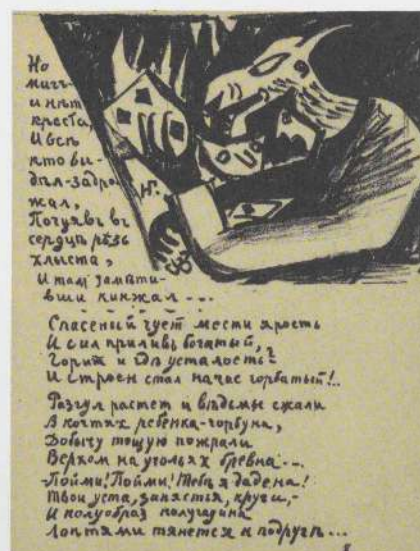 Но
мигъ-
и нѣт
креста,
И всѣ
кто ви-
дѣл-задро
жал,
Почуявъ въ
сердцѣ рѣзь
хлыста,
И там замѣти-
вши кинжал...
НГ.
Спасеный чует мести ярость
И сил приливъ богатый,
Горит и гдѣ усталость?
И строен стал на час горбатый!..
Разгул растет и вѣдьмы сжали
В когтях ребенка-горбуна,
Добычу тощую пожрали
Верхом на угольях бревна...
-Пойми! Пойми! Тебѣ я дадена!
Твои уста, запястья, круги,-
И полуобраз полугадина
Локтями тянется к подругѣ...